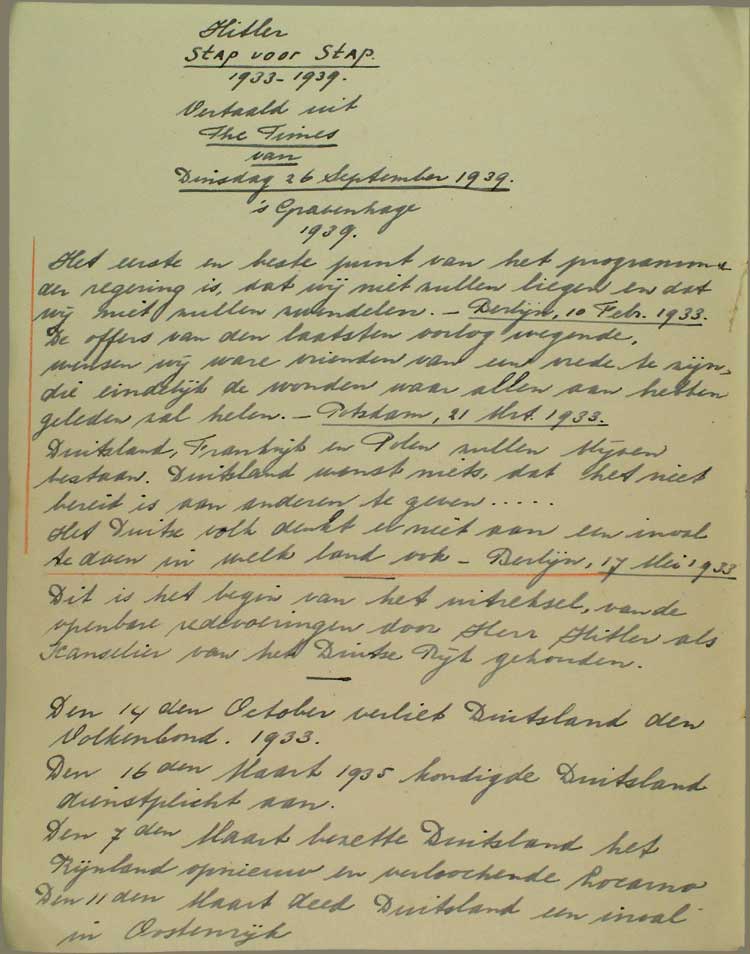 Hitler
Stap voor Stap.
1933-1939.
Vertaald uit
The Times
van
Dinsdag 26 September 1939.
's Gravenhage
1939.
Het eerste en beste punt van het programma
der regering is, dat wij niet zullen liegen en dat
wij niet zullen zwendelen. - Berlijn, 10 Febr. 1933.
De offers van den laatsten oorlog wegende,
wensen wij ware vrienden van een vrede te zijn,
die eindelijk de wonden waar allen aan hebben
geleden zal helen. - Potsdam, 21 Mrt. 1933.
Duitsland, Frankrijk en Polen zullen blijven
bestaan. Duitsland wenst niets, dat het niet
bereid is aan anderen te geven .....
Het Duitse volk denkt er niet aan een inval
te doen in welk land ook - Berlijn, 17 Mei 1933
Dit is het begin van het uitreksel, van de
openbare redevoeringen door Herr Hitler als
Kanselier van het Duitse Rijk gehouden.
Den 14 den October verliet Duitsland den
Volkenbond. 1933.
Den 16 den Maart 1935 kondigde Duitsland
dienstplicht aan.
Den 7 den Maart bezette Duitsland het
Rijnland opnieuw en verloochende Locarno
Den 11 den Maart deed Duitsland een inval
in Oostenrijk